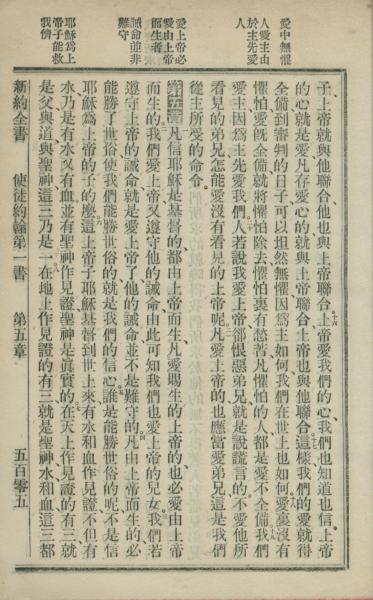 愛中無懼
人愛主由
於主先愛
人
愛上帝必
愛由上帝
而生者
誡命並非
難守
耶穌爲上
帝子能救
我儕
子上帝就與他聯合他也與上帝聯合上帝愛我們的心我們也知道也信上帝
的心就是愛凡存愛心的就與上帝聯合上帝也與他聯合這樣我們的愛就得
全備到審判的日子可以坦然無懼因爲主如何我們在世上也如何愛裏沒有
懼怕愛旣全備就將懼怕除去懼怕裏有愁苦凡懼怕的人都是愛不全備我們
愛主因爲主先愛我們人若說我愛上帝卻恨惡弟兄就是說謊言的不愛他所
看見的弟兄怎能愛沒有看見的上帝呢凡愛上帝的也應當愛弟兄這是我們
從主所受的命令
第五章凡信耶穌是基督的都由上帝而生凡愛賜生的上帝的也必愛由上帝
而生的我們愛上帝又遵守他的誡命由此可知我們也愛上帝的兒女我們若
遵守上帝的誡命就是愛上帝了他的誡命並不是難守的凡由上帝而生的必
能勝了世俗使我們能勝世俗的就是我們的信心誰是能勝世俗的呢不是信
耶穌爲上帝的子的麼這上帝子耶穌基督到世上來有水和血作見證不但有
水乃是有水又有血並有聖神作見證聖神是眞實的在天上作見證的有三就
是父與道與聖神這三乃是一在地上作見證的有三就是聖神水和血這三都
新約全書 使徒約翰第一書 第五章 五百零五